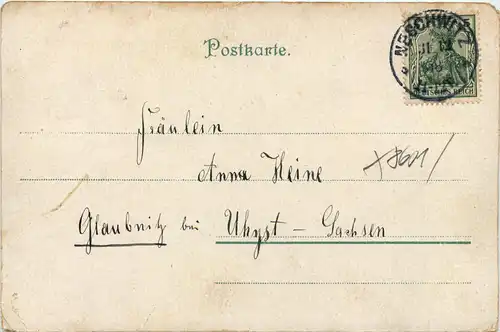 Postkarte.
NESCHWITZ
REICH
Fräulein
Anna Heine
Glaubnitz bei Uhyst - Sachsen